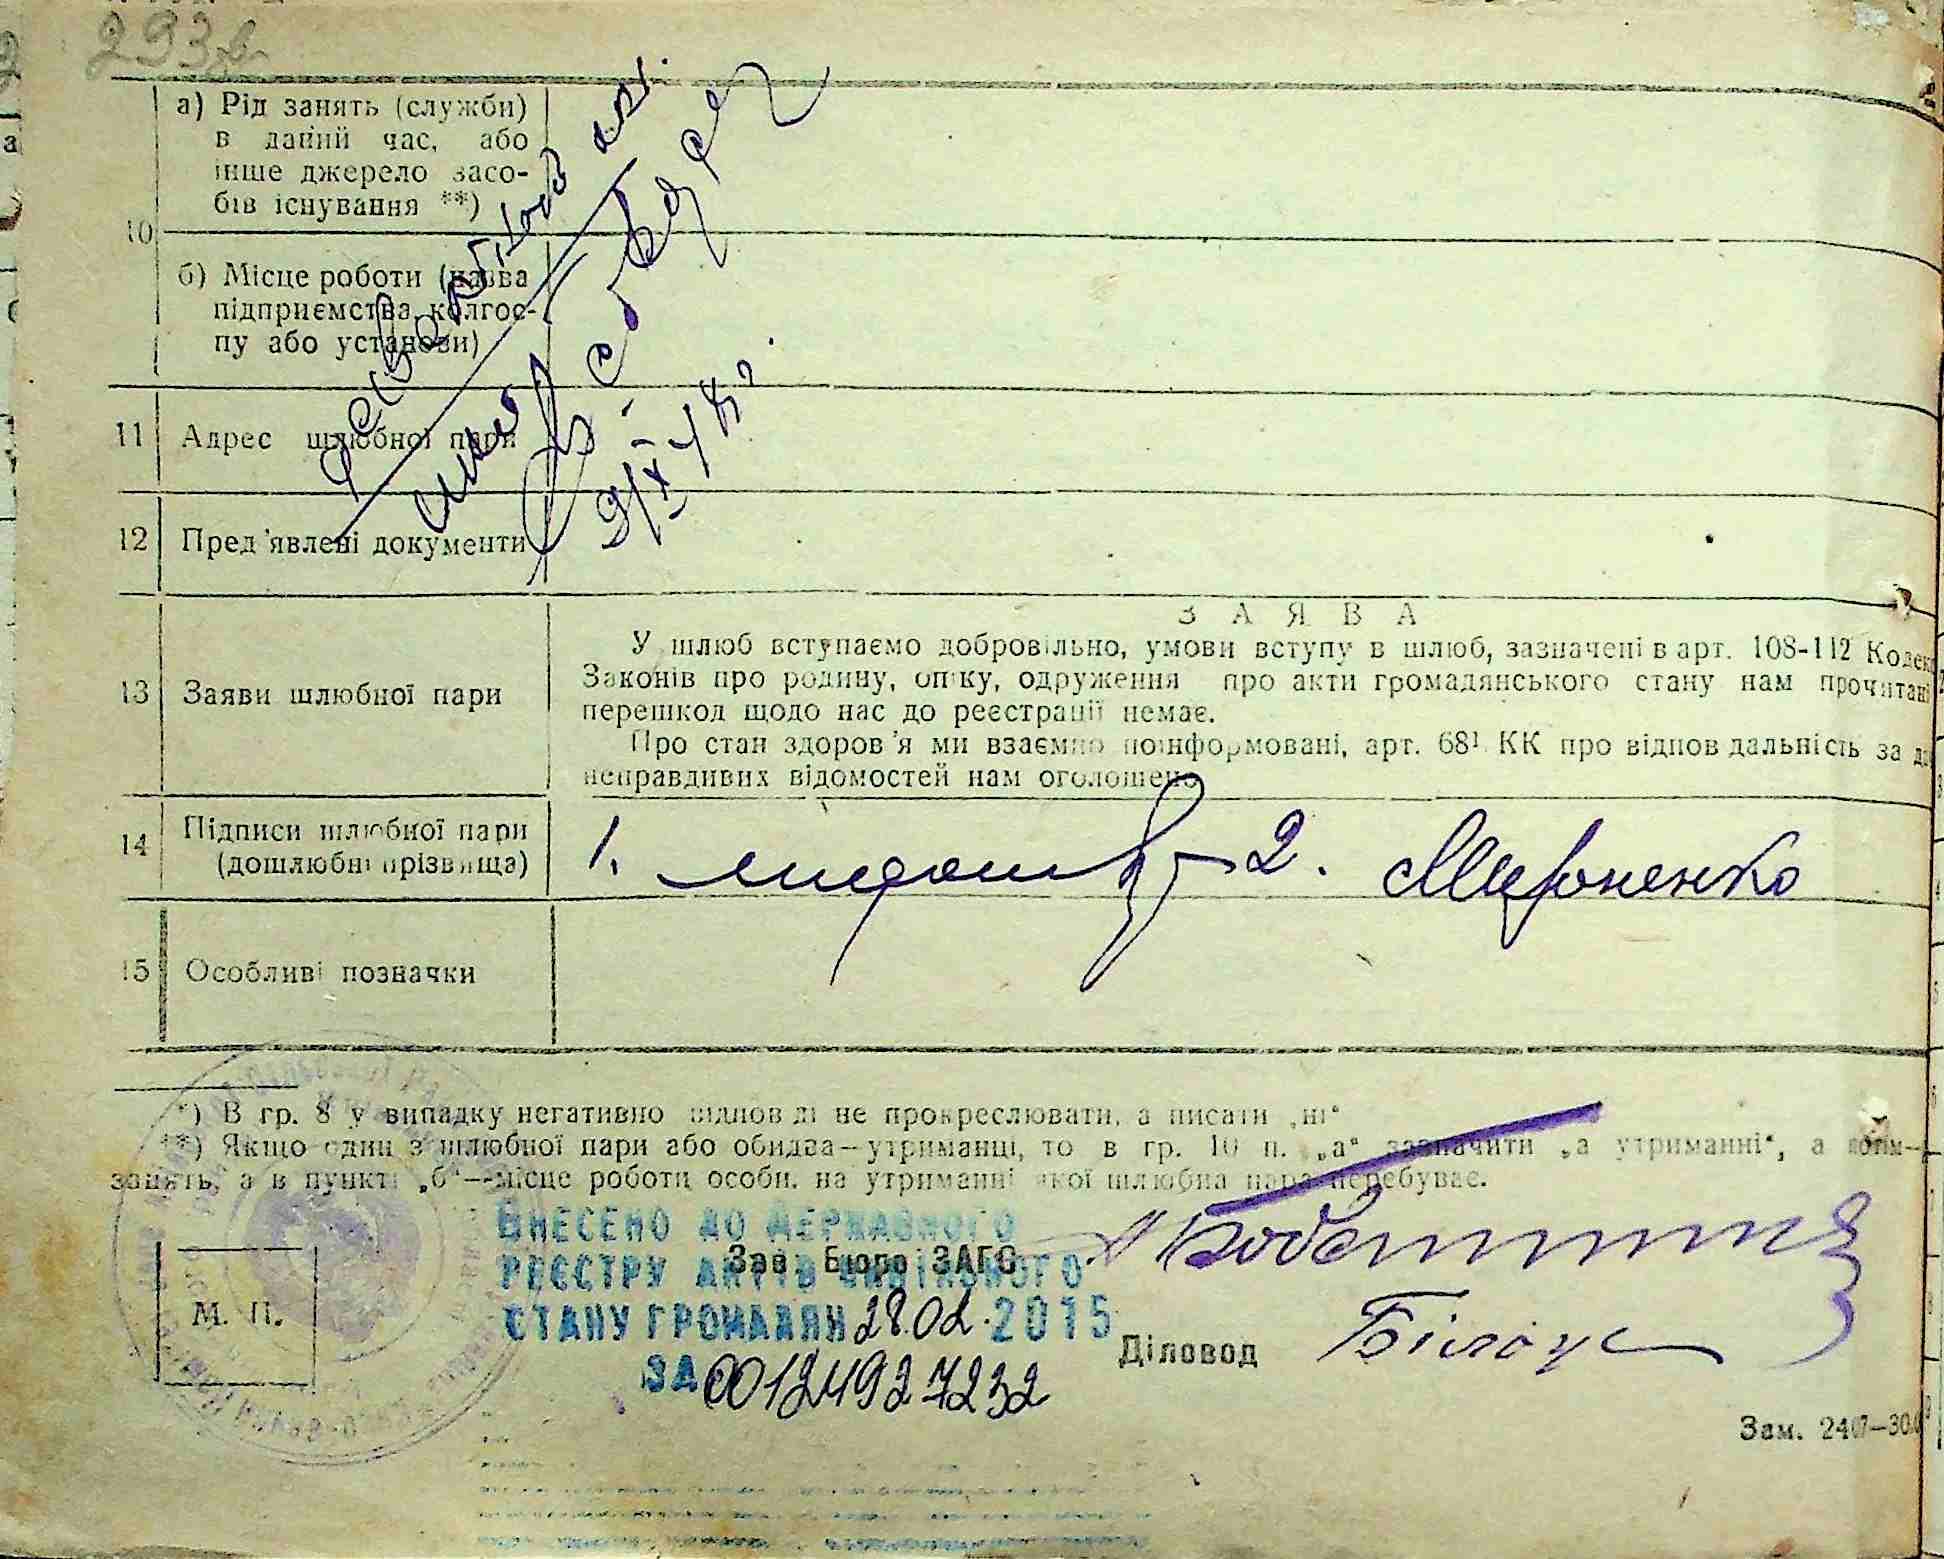 293
а) Рід занять (служби)
в даний час, або
інше джерело засо-
бів існування **)
10
б) Місце роботи (назва
підприємства, колгос-
пу або установи)
11 Адрес шлюбної пари
12 Пред'явлені документи
ЗАЯВА
У шлюб вступаємо добровільно, умови вступу в шлюб, зазначені в арт. 108-112 Кодек
Законів про родину, опіку, одруження про акти громадянського стану нам прочитані
13 Заяви шлюбної пари
перешкод щодо нас до реєстрації немає.
Про стан здоров'я ми взаємно поінформовані, арт. 68¹ КК про відповідальність за
неправдивих відомостей нам оголошено
14 Підписи шлюбної пари
(дошлюбні прізвища)
1. 2. Мироненко
15 Особливі позначки
*) В гр. 8 у випадку негативно відповіді не прокреслювати, а писати „ні“
**) Якщо один з шлюбної пари або обидва—утриманці, то в гр. 10 п. „а“ зазначити „а утриманні“, а
занять, а в пункті „б“—місце роботи особи, на утриманні якої шлюбна пара перебуває.
ВНЕСЕНО ДО ДЕРЖАВНОГО
РЕЄСТРУ АКТІВ ЦИВІЛЬНОГО
СТАНУ ГРОМАДЯН 28.02.2015
ЗА 00124927232
Зав. Бюро ЗАГС
М. П.
Діловод Білоус
Зам. 2407—30